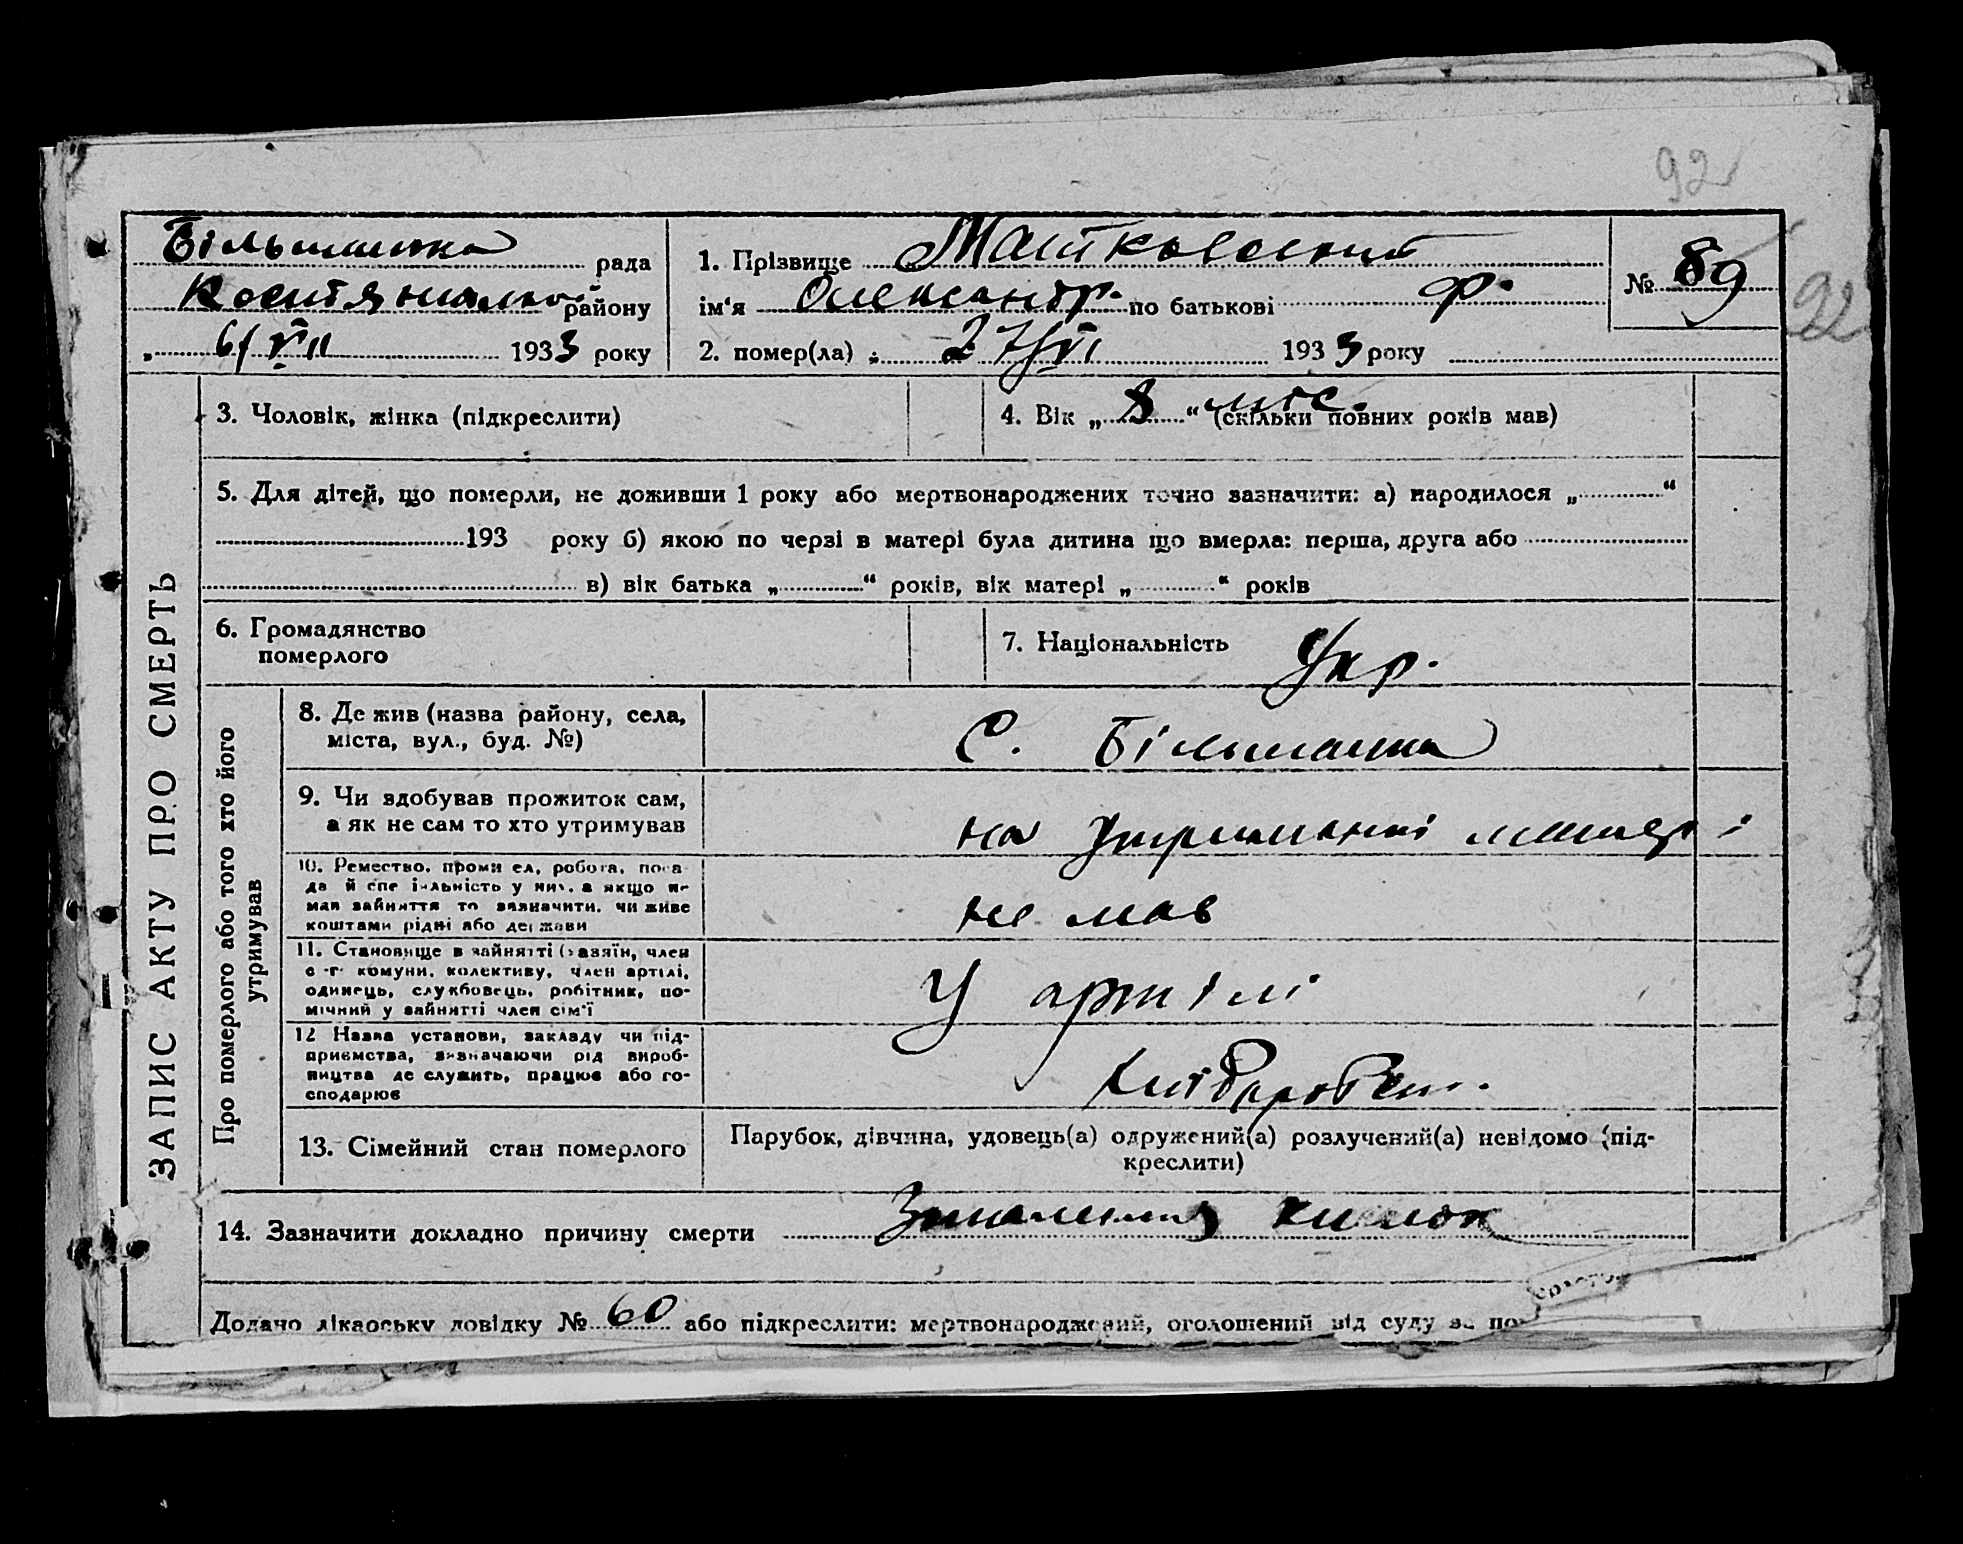 92
Більманка рада
району
6/VII 1933 року
1. Прізвище Матковський
ім‘я Олександр. по батькові Ф.
2. помер(ла) „ 27/VI 1933 року
№ 89
92
ЗАПИС АКТУ ПРО СМЕРТЬ
3. Чоловік, жінка (підкреслити)
4. Вік „ 8 “ міс. (скільки повних років мав)
5. Для дітей, що померли, не доживши 1 року або мертвонароджених точно зазначити: а) народилося „ “
193 року б) якою по черзі в матері була дитина що вмерла: перша, друга або
в) вік батька „ “ років, вік матері „ “ років
6. Громадянство
померлого
7. Національність Укр.
Про померлого або того хто його
утримував
8. Де жив (назва району, села,
міста, вул., буд. №)
С. Більманка
9. Чи здобував прожиток сам,
а як не сам то хто утримував
на утриманні матері
10. Ремество, проми ел, робота, поса
да й спе іяльність у них, а якщо не
мав зайняття то зазначити, чи живе
коштами рідні або держави
не мав
11. Становище в зайнятті (хазяїн, член
с -г комуни, колективу, член артілі,
одинець, службовець, робітник, по-
мічний у зайнятті член сім‘ї
У артілі
12 Назва установи, закладу чи під-
приємства, зазначаючи рід вироб-
ництва де служить, працює або го-
сподарює
13. Сімейний стан померлого
Парубок, дівчина, удовець(а) одружений(а) розлучений(а) невідомо (під-
креслити)
14. Зазначити докладно причину смерти Запалення кишок
Додано лікарську довідку № 60 або підкреслити: мертвонароджений, оголошений від суду за по